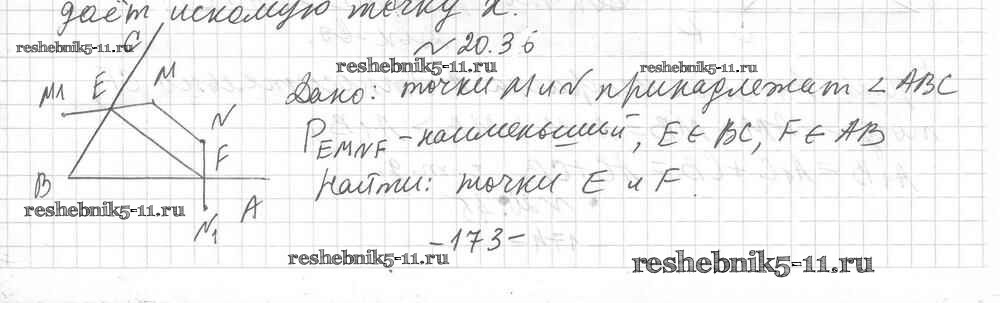 даёт искомую точку X.
reshebnik5-11.ru
№ 20.36
reshebnik5-11.ru
reshebnik5-11.ru
C
M1 E M
N
F
B
A
N1
Дано: точки M и N принадлежат ∠ ABC
P EMNF – наименьший, E ∈ BC, F ∈ AB
Найти: точки E и F.
reshebnik5-11.ru
–173–
reshebnik5-11.ru
reshebnik5-11.ru